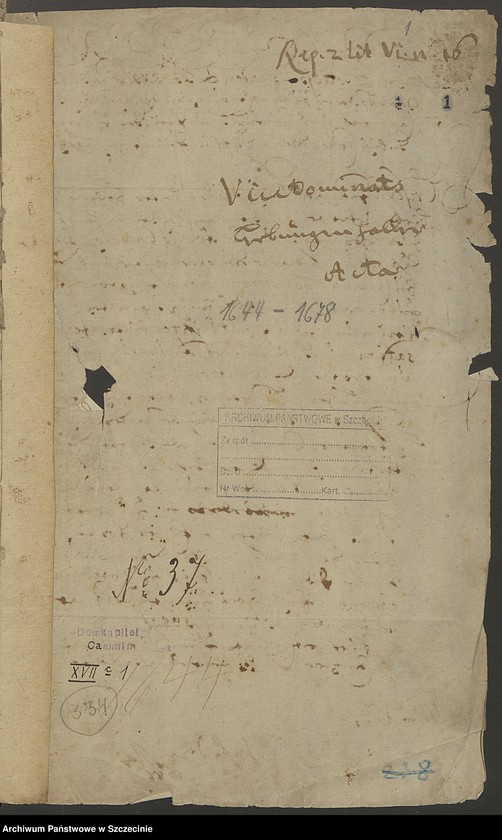 Rep. 2 lit V
1
Vicedominats
Hebungen halber
Acta
1644 - 1678
ARCHIWUM PAŃSTWOWE w Szczecinie
Zespół
Dział
Nr Wol. Kart.
No 37
Domkapitel
Cammin
XVII c 1
334
Archiwum Państwowe w Szczecinie